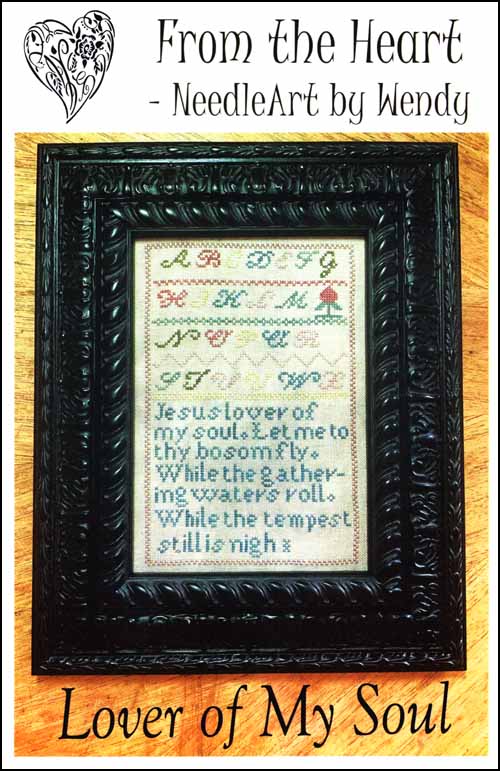 From the Heart
- NeedleArt by Wendy
A B C D E F G
H I K L M
N O P Q R
S T U V W X
Jesus lover of
my soul. Let me to
thy bosom fly.
While the gather-
ing waters roll.
While the tempest
still is nigh x
Lover of My Soul